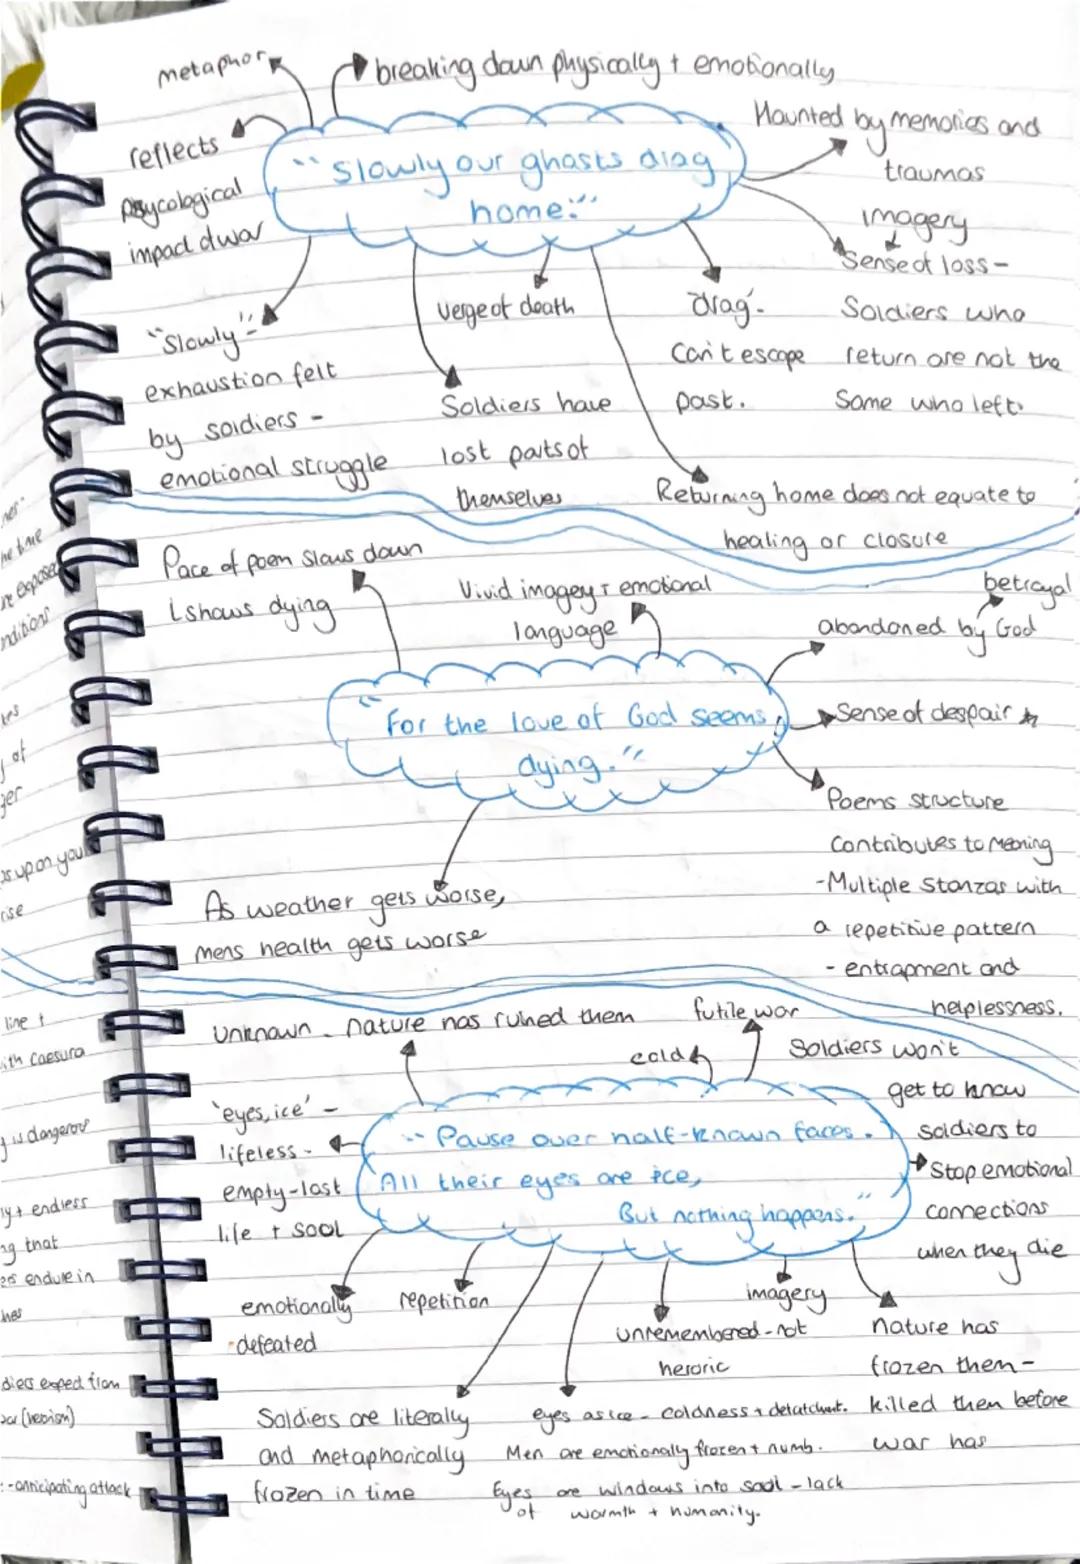 metaphor
breaking down physically + emotionally
reflects
psycological
impact of war
"Slowly our ghosts drag
home:"
Haunted by memories and
traumas
imagery
Sense of loss -
Soldiers who
return are not the
same who left.
"Slowly" -
exhaustion felt
by soldiers -
emotional struggle
verge of death
Soldiers have
lost parts of
themselves
'drag' -
Can't escape
past.
Returning home does not equate to
healing or closure
Pace of poem slows down
shows dying
Vivid imagery + emotional
language
betrayal
abandoned by God
"For the love of God seems
dying."
Sense of despair
Poems structure
contributes to meaning
- Multiple stanzas with
a repetitive pattern
- entrapment and
helplessness.
As weather gets worse,
mens health gets worse
unknown - nature has ruined them
futile war
cold
Soldiers won't
get to know
soldiers to
stop emotional
connections
when they die
'eyes, ice' -
lifeless -
empty - lost
life + soul
"Pause over half-known faces.
All their eyes are ice,
But nothing happens."
emotionally
-defeated
repetition
Soldiers are literally
and metaphorically
frozen in time
eyes as ice - coldness + detatchment.
Men are emotionally frozen + numb.
Eyes are windows into soul - lack
of warmth + humanity.
unremembered - not
heroric
imagery
nature has
frozen them -
killed them before
war has
he time
re exposed
nditions
of
ger
upon you
rise
line +
ith caesura
is dangerous
y + endless
ng that
ers endure in
diers expect from
war (heroism)
- anticipating attack